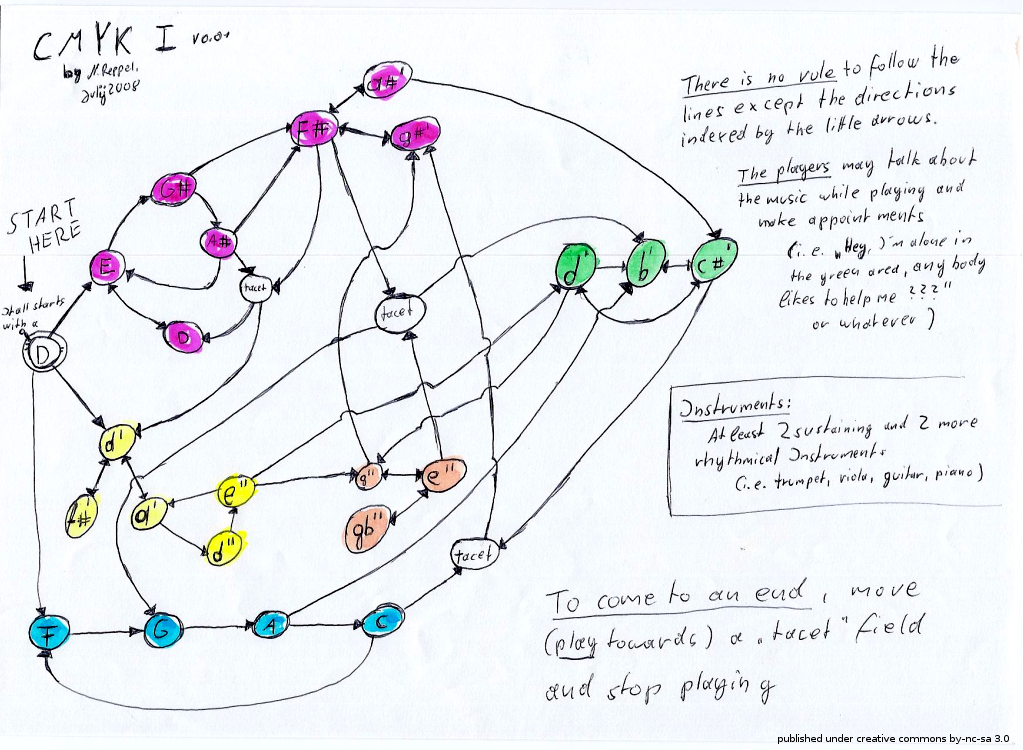 CMYK I v0.01
by N. Reppel,
July 2008
START
HERE
Shall starts
with a
D
There is no rule to follow the
lines except the directions
indered by the little arrows.
The players may talk about
the music while playing and
make appointments
(i.e. „Hey, I'm alone in
the green area, any body
likes to help me ???"
or whatever)
Instruments:
At least 2 sustaining and 2 more
rhythmical Instruments
(i.e. trumpet, viola, guitar, piano)
To come to an end, move
(play towards) a „tacet" field
and stop playing
a#'
F#
g#'
G#
A#
E
tacet
D
tacet
d'
b'
c#'
d'
f#'
e''
d''
g''
e''
gb''
tacet
F
G
A
C
published under creative commons by-nc-sa 3.0